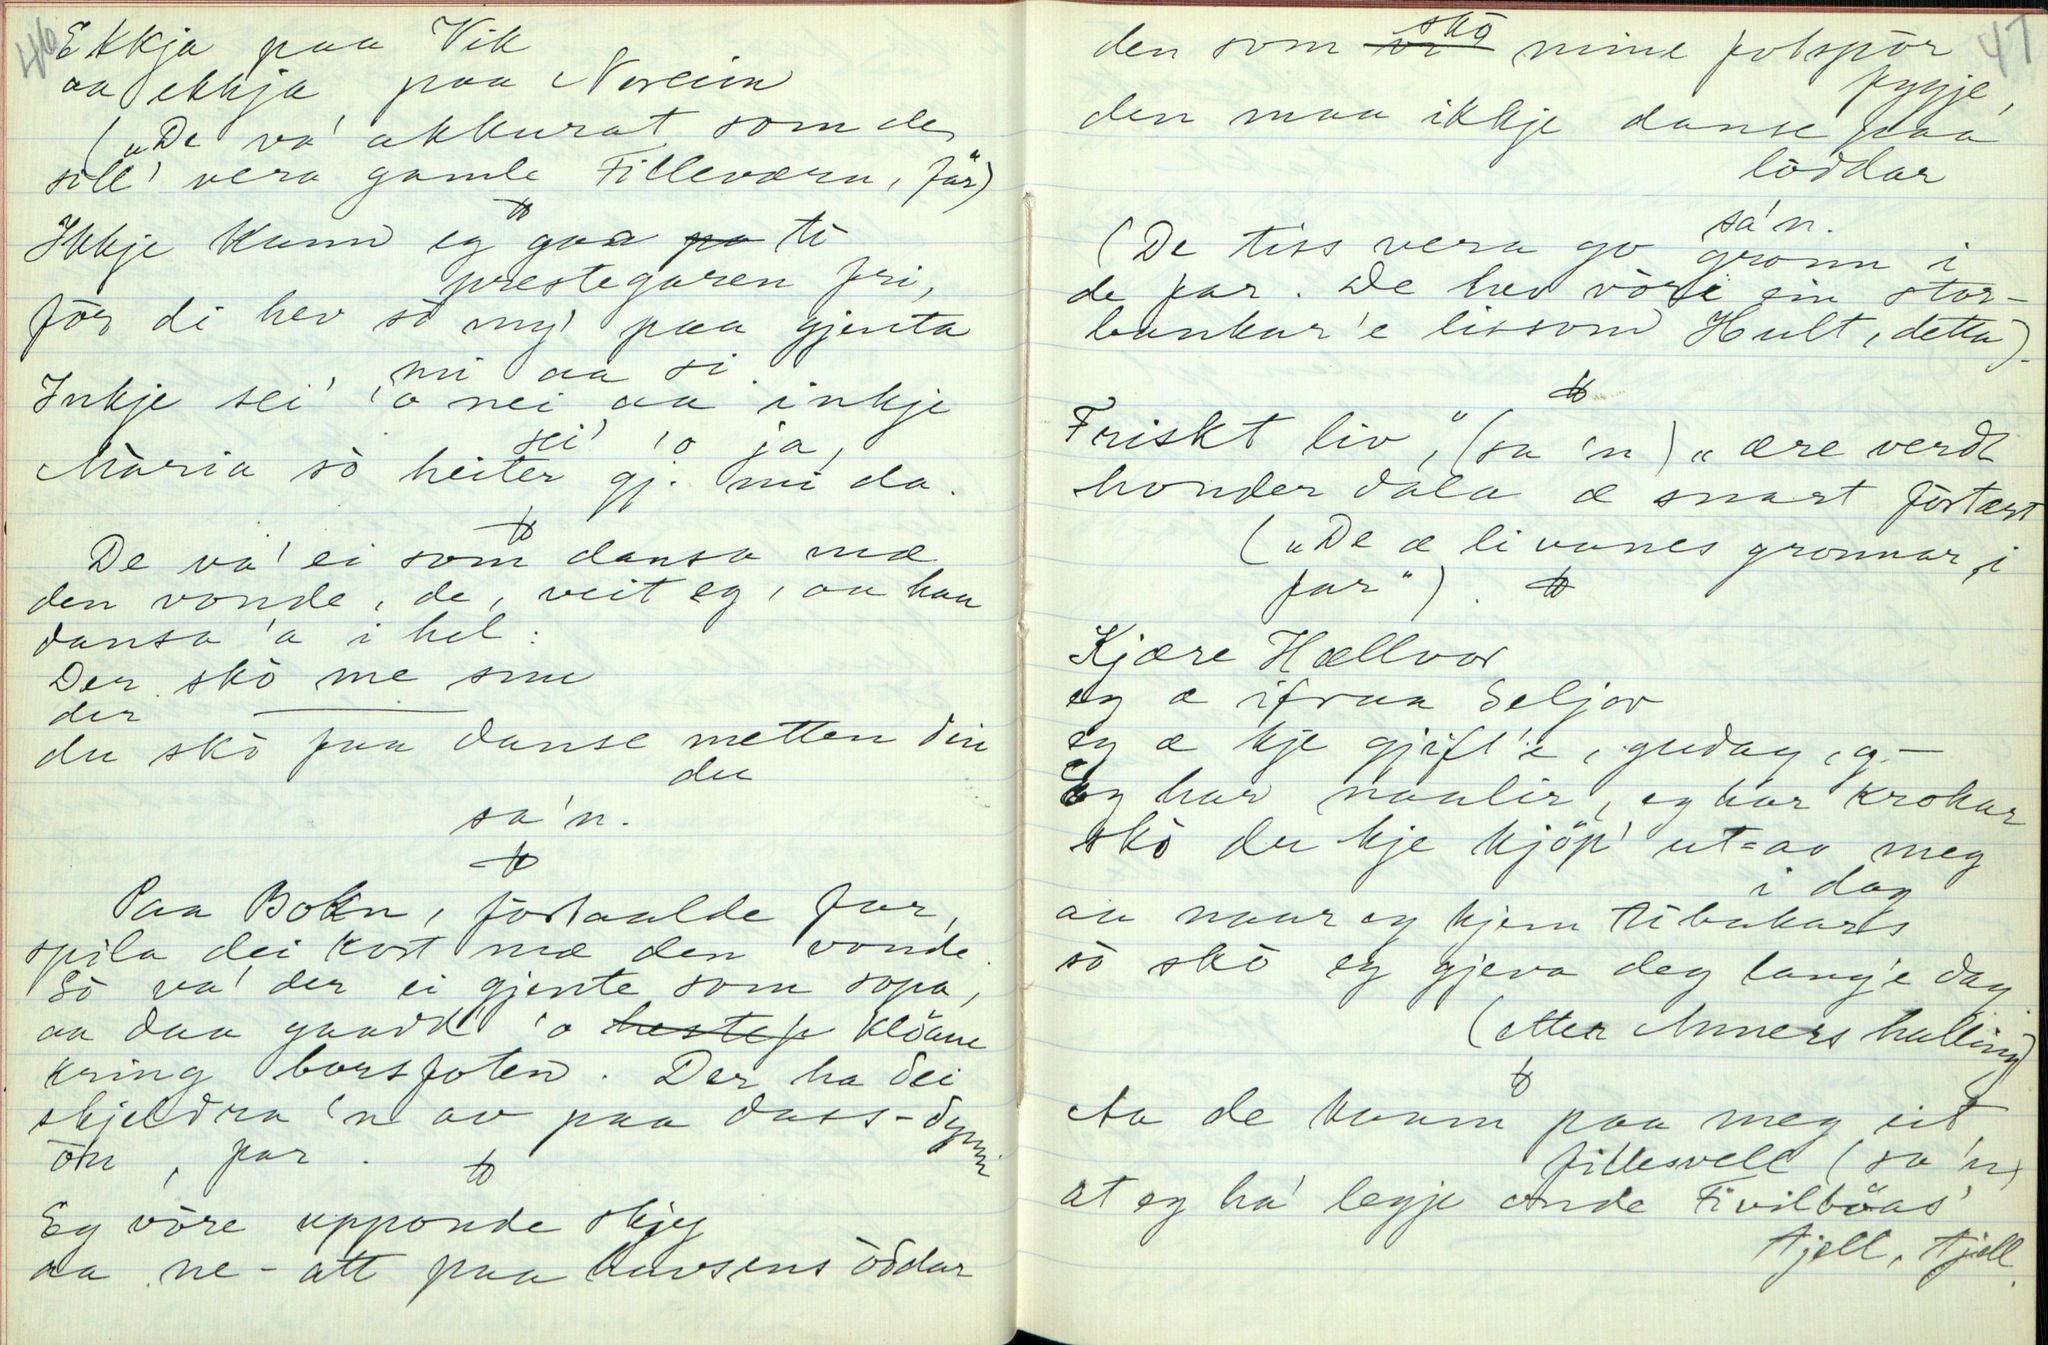 46
Ekkja paa Vik
aa ekkja paa Noreim
("De va' akkurat som de
sill' vera gamle Filleværn, far")
Ikkje kunn eg gaa pa ti
prestegaren fri,
för di hev so my' paa gjenta
mi aa si
Inkje sei' 'o nei aa inkje
sei' 'o ja,
Maria so heiter gj. mi da.
De va' ei som dansa mæ
den vonde, de, veit eg, aa han
dansa 'a i hel:
Der skö me snu
der
du skö faa danse netten din
du
sa'n.
Paa Bokn, fortaalde far,
spila dei kort mæ den vonde.
So va' der ei gjente som sopa,
aa daa gaadd' 'o hestef klöane
kring borsfoten. Der ha dei
skjeldra 'n av paa dass-dynn
ön, far.
Eg vöre upponde skjy
aa ne-att paa havsens öddar
47
den som vi skö mine fotspor
fygje,
den maa ikkje danse paa
löddar
sa'n.
(De tiss vera go gronn i
de far. De hev vöre ein stor-
bankar'e lissom Hult, detta).
Friskt liv," (sa 'n) "ære verdt
honder dala æ snart förtært
("De æ livanes gronnar, i
far").
Kjære Hællvor
eg æ ifraa Seljor
eg æ kje gjift'e, gudag, g.-
Eg har naalir, eg har krokar
skö du kje kjöp' ut-av meg
i dag
aa naar eg kjem tibakars
so skö eg gjeva deg lang'e dag
(etter Anners halling)
Aa de kaam paa meg eit
fillesvell (sa 'n)
at eg ha' legje onde Fivilböas'
tjell, tjell.